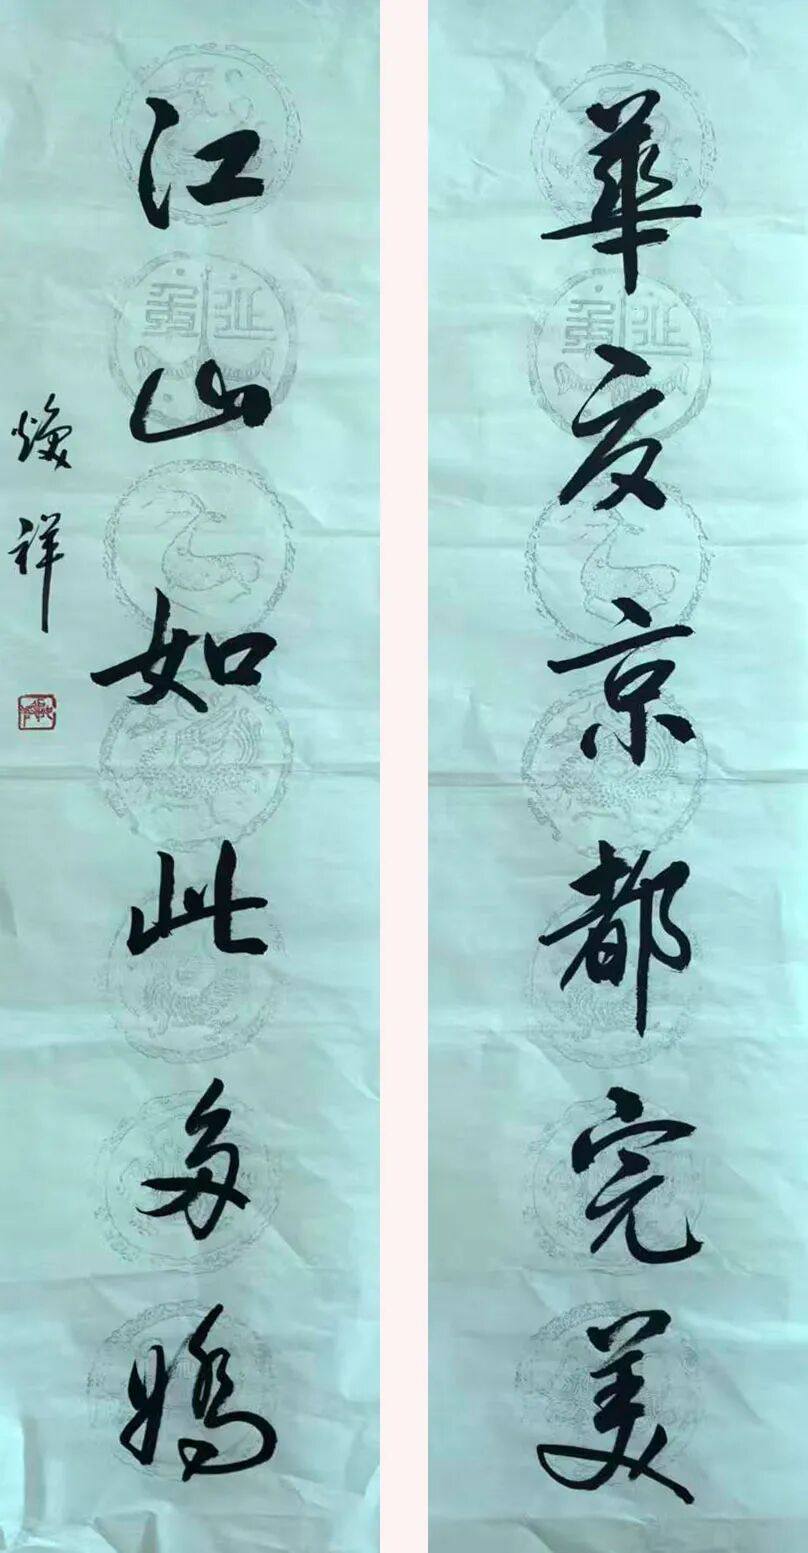 華夏京都完美
江山如此多嬌
煥祥